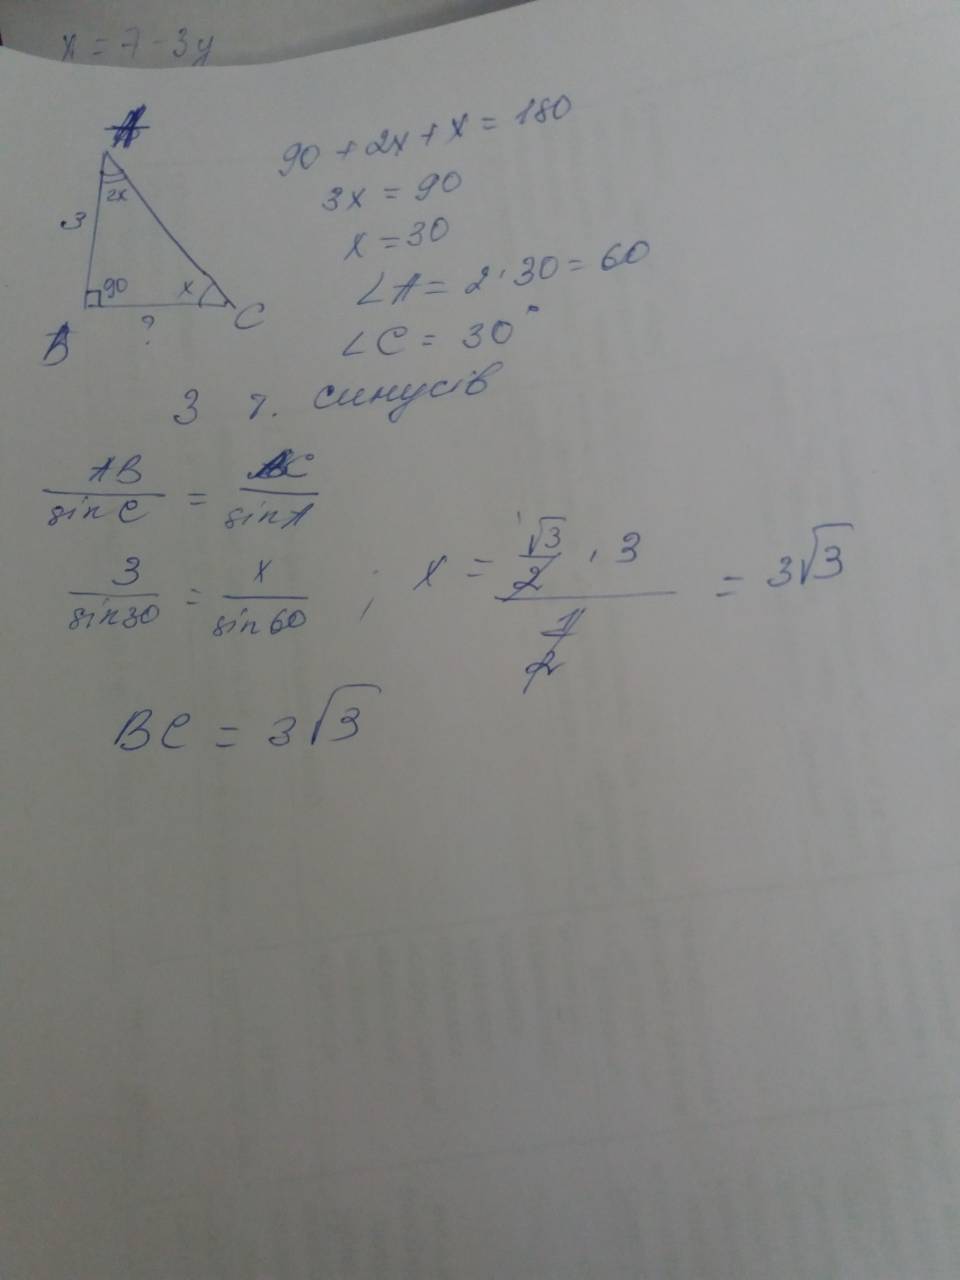 x = 7 - 3y
A
2x
3
90
x
B
?
C
90 + 2x + x = 180
3x = 90
x = 30
∠A = 2 · 30 = 60
∠C = 30°
З т. синусів
AB/sin C = BC/sin A
3/sin 30 = x/sin 60 ; x = (√3/2 · 3)/(1/2) = 3√3
BC = 3√3